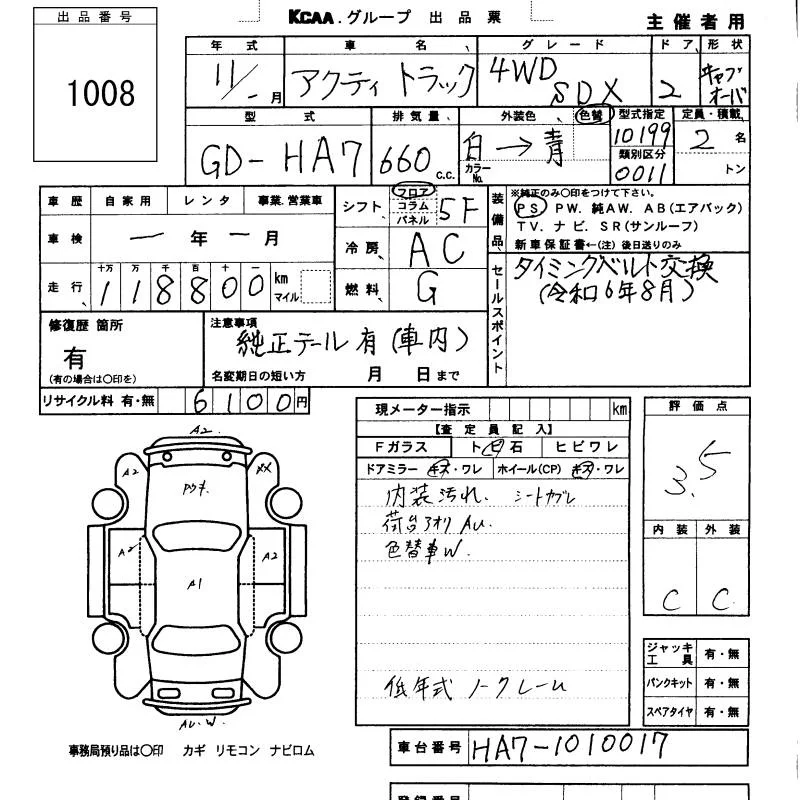 出品番号
1008
KCAA.グループ 出品票
主催者用
年式 車名 グレード ドア 形状
11/ 月 アクティ トラック 4WD SDX 2 キャブオーバ
型式 排気量 外装色 色替 型式指定 定員・積載
GD-HA7 660 c.c. 白→青 カラーNo. 10199 2 名
類別区分
0011 トン
車歴 自家用 レンタ 事業.営業車
シフト フロア コラム パネル 5F
装備品 ※純正のみ〇印をつけて下さい。
PS. PW. 純AW. AB(エアバック)
TV. ナビ. SR(サンルーフ)
新車保証書←(注)後日送りのみ
車検 一 年 一 月
冷房 AC
走行 十万 万 千 百 十 一
118800 km マイル
燃料 G
セールスポイント
タイミングベルト交換
(令和6年8月)
修復歴 箇所
有
(有の場合は〇印を)
注意事項
純正テール有(車内)
名変期日の短い方 月 日まで
リサイクル料 有・無 6100円
現メーター指示 km
【査定員記入】
Fガラス ト 石 ヒビワレ
ドアミラー キズ・ワレ ホイール(CP) キズ・ワレ
内装汚れ. シート
荷台アオリ AU.
色替車W.
低年式 ノークレーム
評価点
3.5
内装 外装
C C
ジャッキ 工具 有・無
パンクキット 有・無
スペアタイヤ 有・無
A2
A2 XX
A2 A2
A1
AU.W.
事務局預り品は〇印 カギ リモコン ナビロム
車台番号 HA7-1010017
登録番号